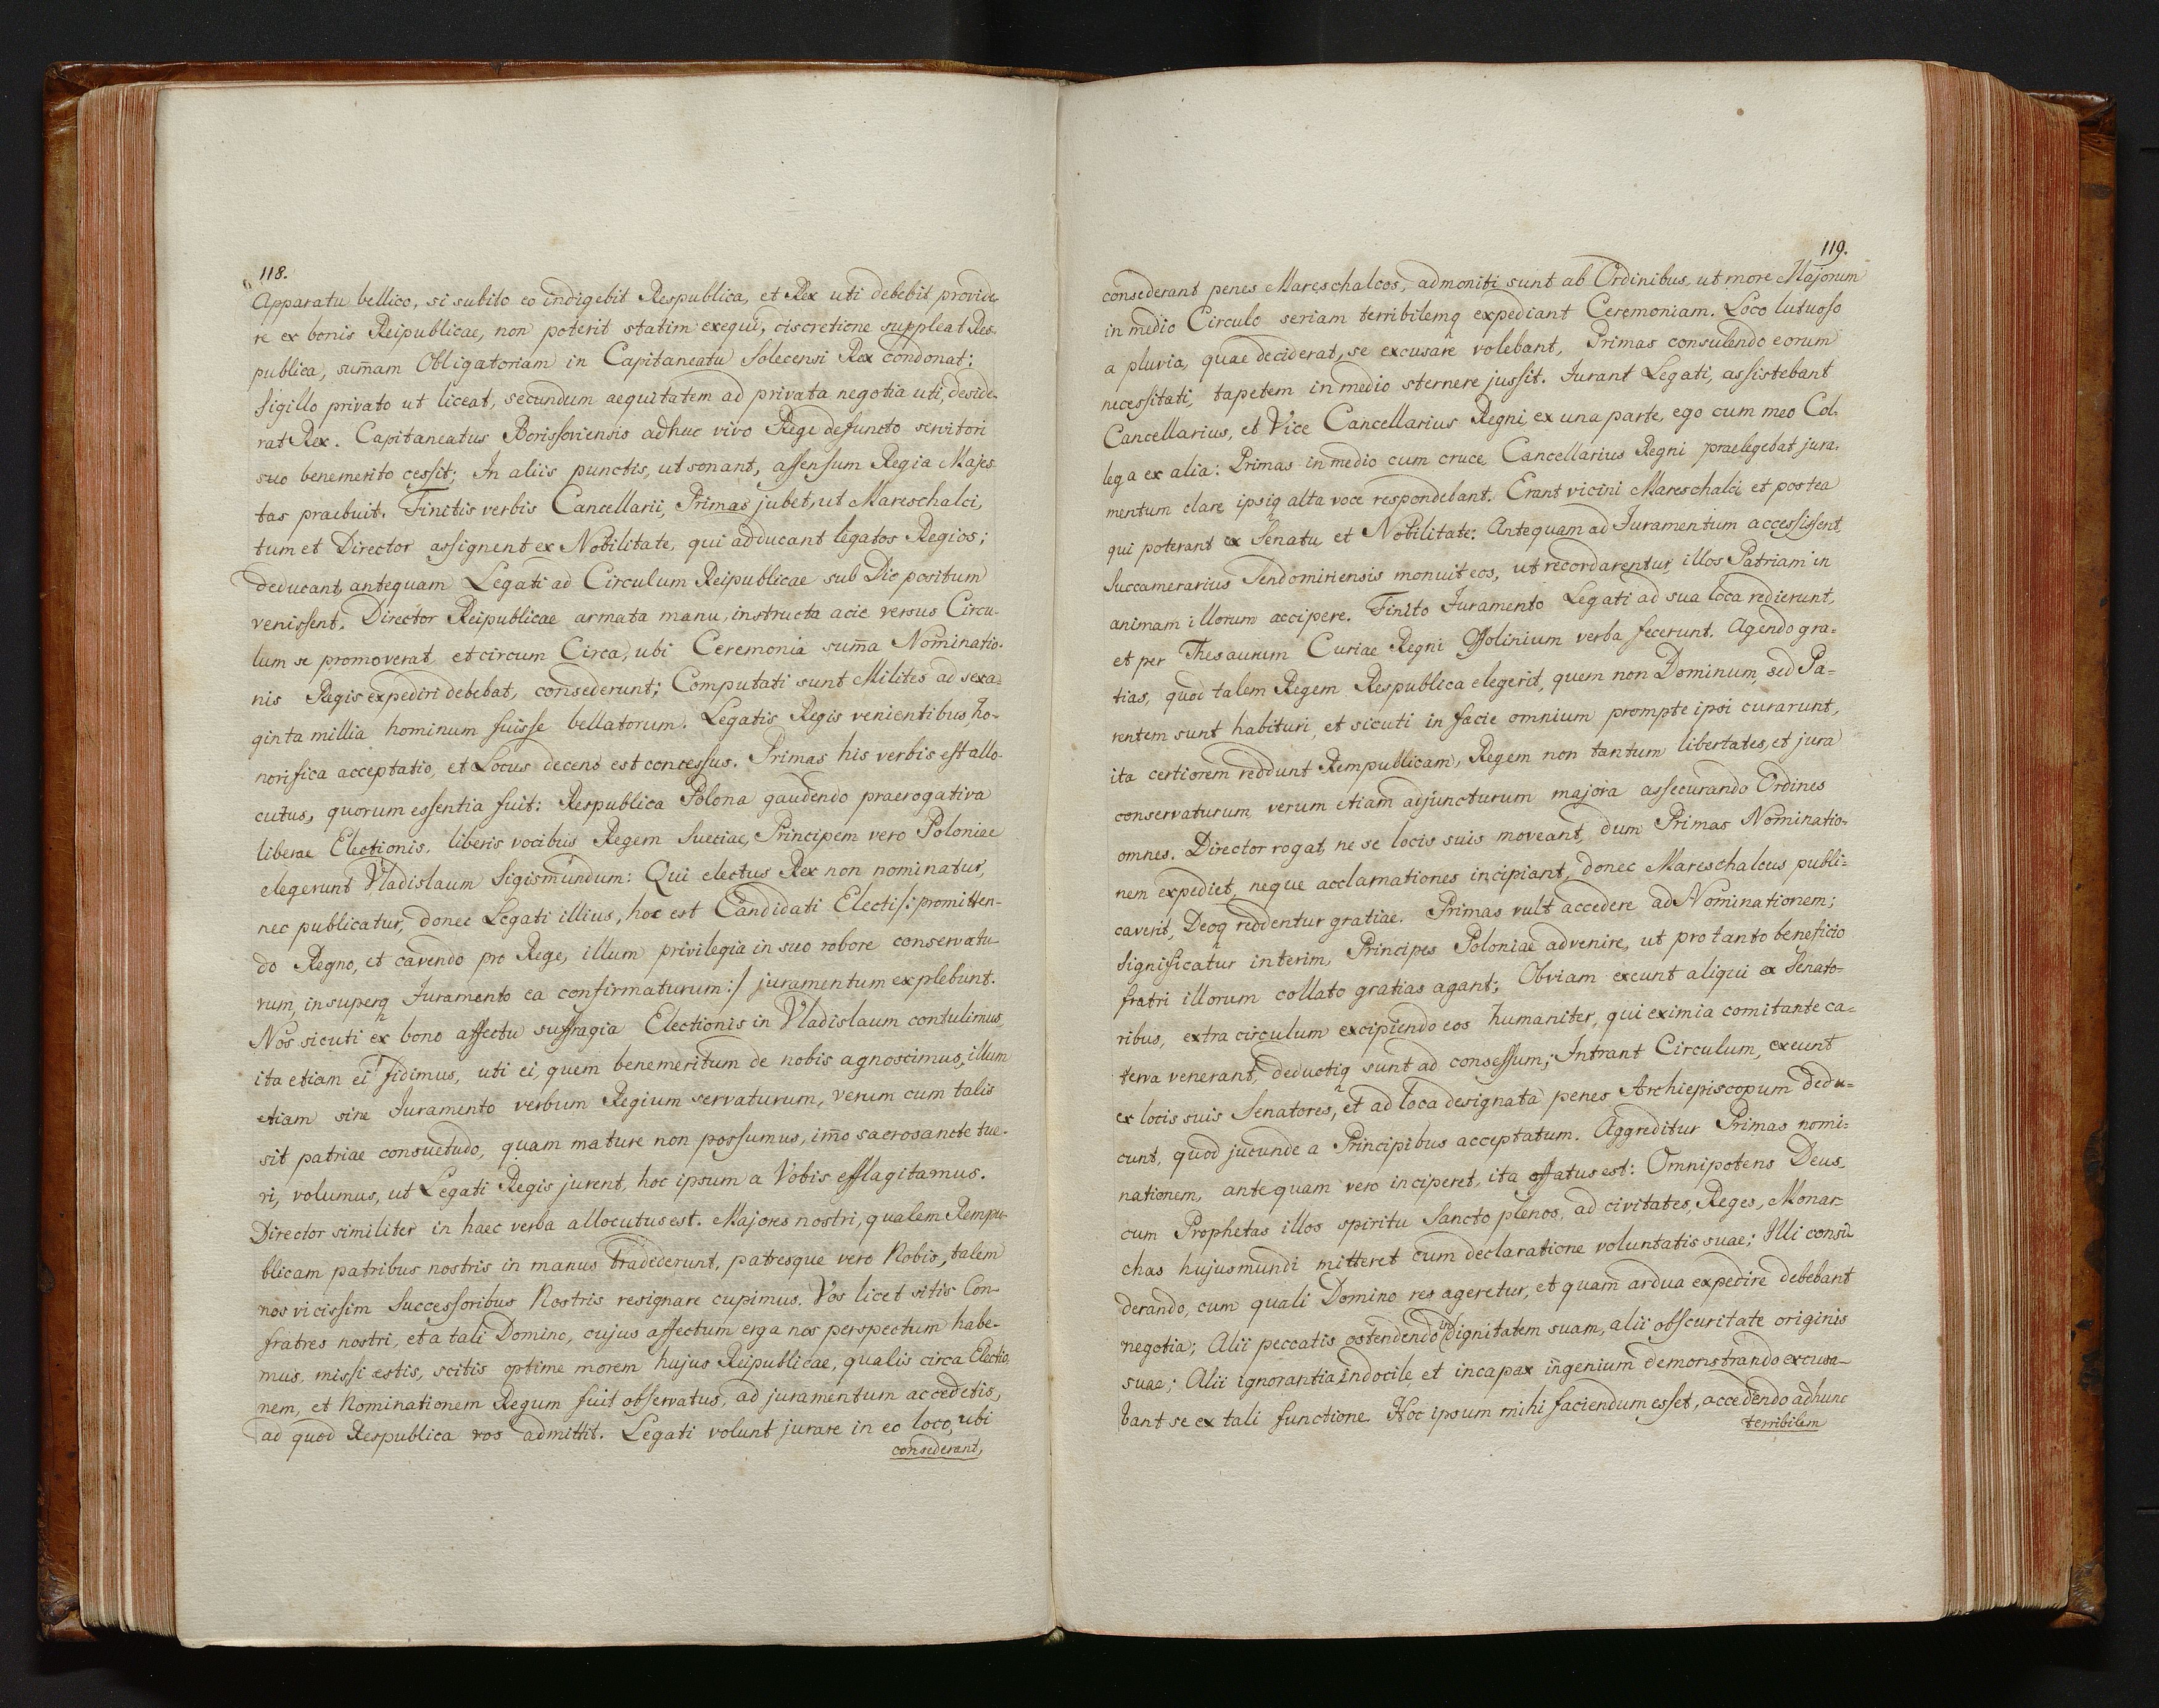 118.
Apparatu bellico, si subito eo indigebit Respublica, et Rex uti debebit, provide-
re ex bonis Reipublicae, non poterit statim exequi, ciscretione suppleat Res-
publica, sum̄am Obligatoriam in Capitaneatu Solecensi Rex condonat:
Sigillo privato ut liceat, secundum aequitatem ad privata negotia uti, deside-
rat Rex. Capitaneatus Borissoviensis adhuc vivo Rege defuncto servitori
suo benemerito cessit; In aliis punctis, ut sonant, assensum Regia Majes-
tas praebuit. Finitis verbis Cancellarii, Primas jubet, ut Mareschalci,
tum et Director assignent ex Nobilitate, qui adducant legatos Regios;
deducant, antequam Legati ad Circulum Reipublicae sub Dio positum
venissent. Director Reipublicae armata manu, instructa acie versus Circu-
lum se promoverat, et circum Circa, ubi Ceremonia sum̄a Nominatio-
nis Regis expediri debebat, consederunt; Computati sunt Milites ad sexa-
ginta millia hominum fuisse bellatorum. Legatis Regis venientibus ho-
norifica acceptatio, et Locus decens est concessus. Primas his verbis est allo-
cutus, quorum essentia fuit: Respublica Polona gaudendo praerogativa
liberae Electionis, liberis vocibus Regem Sueciae, Principem vero Poloniae
elegerunt Vladislaum Sigismundum: Qui electus Rex non nominatur,
nec publicatur, donec Legati illius, hoc est Candidati Electi /: promitten-
do Regno, et cavendo pro Rege, illum privilegia in suo robore conservatu-
rum, insuperq Iuramento ea confirmaturum :/ juramentum explebunt.
Nos sicuti ex bono affectu suffragia Electionis in Vladislaum contulimus,
ita etiam ei fidimus, uti ei, quem benemeritum de nobis agnoscimus, illum
etiam sine Iuramento verbum Regium servaturum, verum cum talis
sit patriae consuetudo, quam mature non possumus, im̄o sacrosancte tue-
ri, volumus, ut Legati Regis jurent, hoc ipsum a Vobis efflagitamus.
Director similiter in haec verba allocutus est. Majores nostri, qualem Rempu-
blicam patribus nostris in manus tradiderunt, patresque vero Nobis, talem
nos vicissim Successoribus Nostris resignare cupimus. Vos licet sitis Con-
fratres nostri, et a tali Domino, cujus affectum erga nos perspectum habe-
mus, missi estis, scitis optime morem hujus Reipublicae, qualis circa Electio-
nem, et Nominationem Regum fuit observatus, ad juramentum accedetis,
ad quod Respublica vos admittit. Legati volunt jurare in eo loco, ubi
consederant,
119.
consederant penes Mareschalcos, admoniti sunt ab Ordinibus, ut more Majorum
in medio Circulo seriam terribilemq expediant Ceremoniam. Loco lutuoso
a pluvia, quae deciderat, se excusare volebant, Primas consulendo eorum
necessitati, tapetem in medio sternere jussit. Iurant Legati, assistebant
Cancellarius, et Vice Cancellarius Regni, ex una parte, ego cum meo Col-
lega ex alia: Primas in medio cum cruce, Cancellarius Regni praelegebat jura-
mentum clare ipsiq alta voce respondebant. Erant vicini Mareschalci, et postea
qui poterant ex Senatu et Nobilitate. Antequam ad Iuramentum accessissent,
Succamerarius Sendomiriensis monuit eos, ut recordarentur, illos Patriam in
animam illorum accipere. Finito Iuramento Legati ad sua loca redierunt,
et per Thesaurum Curiae Regni Ossolinium verba fecerunt. Agendo gra-
tias, quod talem Regem Respublica elegerit, quem non Dominum, sed Pa-
rentem sunt habituri, et sicuti in facie omnium prompte ipsi curarunt,
ita certiorem reddunt Rempublicam, Regem non tantum libertates, et jura
conservaturum, verum etiam adjuncturum majora assecurando Ordines
omnes. Director rogat, ne se locis suis moveant, dum Primas Nominatio-
nem expediet, neque acclamationes incipiant, donec Mareschalcus publi-
caverit, Deoq reddentur gratiae. Primas vult accedere ad Nominationem;
Significatur interim, Principes Poloniae advenire, ut pro tanto beneficio
fratri illorum collato gratias agant; Obviam exeunt aliqui ex Senato-
ribus, extra circulum excipiendo eos humaniter, qui eximia comitante ca-
terva venerant, deductiq sunt ad consessum; Intrant Circulum, exeunt
ex locis suis Senatores, et ad loca designata penes Archiepiscopum dedu-
cunt, quod jucunde a Principibus acceptatum. Aggreditur Primas nomi-
nationem, antequam vero inciperet, ita affatus est: Omnipotens Deus,
cum Prophetas illos spiritu Sancto plenos, ad civitates, Reges, Monar-
chas hujus mundi mitteret cum declaratione voluntatis suae; Illi consi-
derando, cum quali Domino res ageretur, et quam ardua expedire debebant
negotia; Alii peccatis ostendendo in dignitatem suam, alii obscuritate originis
suae; Alii ignorantia indocile et incapax ingenium demonstrando excusa-
bant se ex tali functione. Hoc ipsum mihi faciendum esset, accedendo ad hunc
terribilem